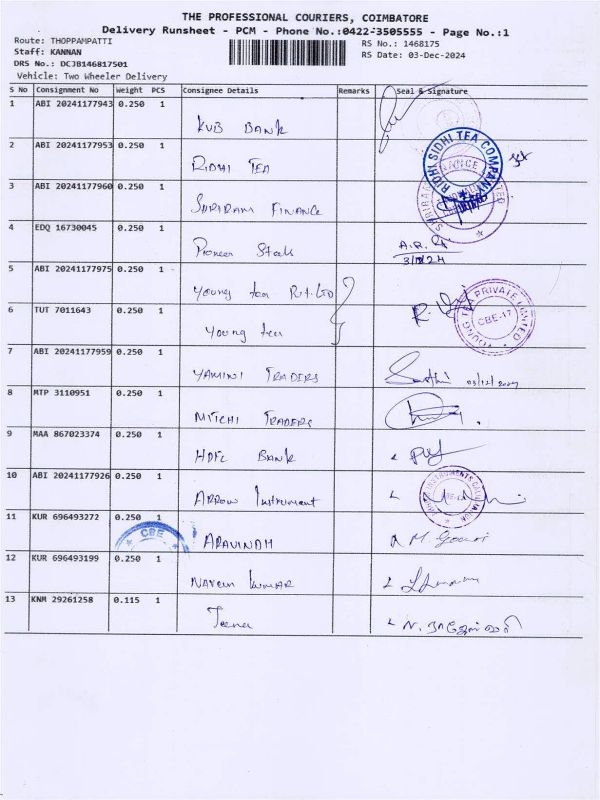 THE PROFESSIONAL COURIERS, COIMBATORE
Delivery Runsheet - PCM - Phone No.:0422-3505555 - Page No.:1
Route: THOPPAMPATTI
Staff: KANNAN
DRS No.: DCJB146817501
Vehicle: Two Wheeler Delivery
RS No.: 1468175
RS Date: 03-Dec-2024
S No Consignment No Weight PCS Consignee Details Remarks Seal & Signature
1 ABI 20241177943 0.250 1 KVB BANK
2 ABI 20241177953 0.250 1 RIDHI TEA
RIDHI SIDHI TEA COMPANY
3 ABI 20241177960 0.250 1 SHRIRAM FINANCE
4 EDQ 16730045 0.250 1 Pioneer Steels
5 ABI 20241177975 0.250 1 Young tea Pvt. LTD
YOUNG TEA PRIVATE LIMITED
CBE-17
6 TUT 7011643 0.250 1 Young tea
7 ABI 20241177959 0.250 1 YAMINI TRADERS
03/12/2024
8 MTP 3110951 0.250 1 MITCHI TRADERS
9 MAA 867023374 0.250 1 HDFC BANK
10 ABI 20241177926 0.250 1 ARROW Instrument
11 KUR 696493272 0.250 1 ARAVINDH M. Gowri
CBE
12 KUR 696493199 0.250 1 NAVEEN KUMAR
13 KNM 29261258 0.115 1 Teena